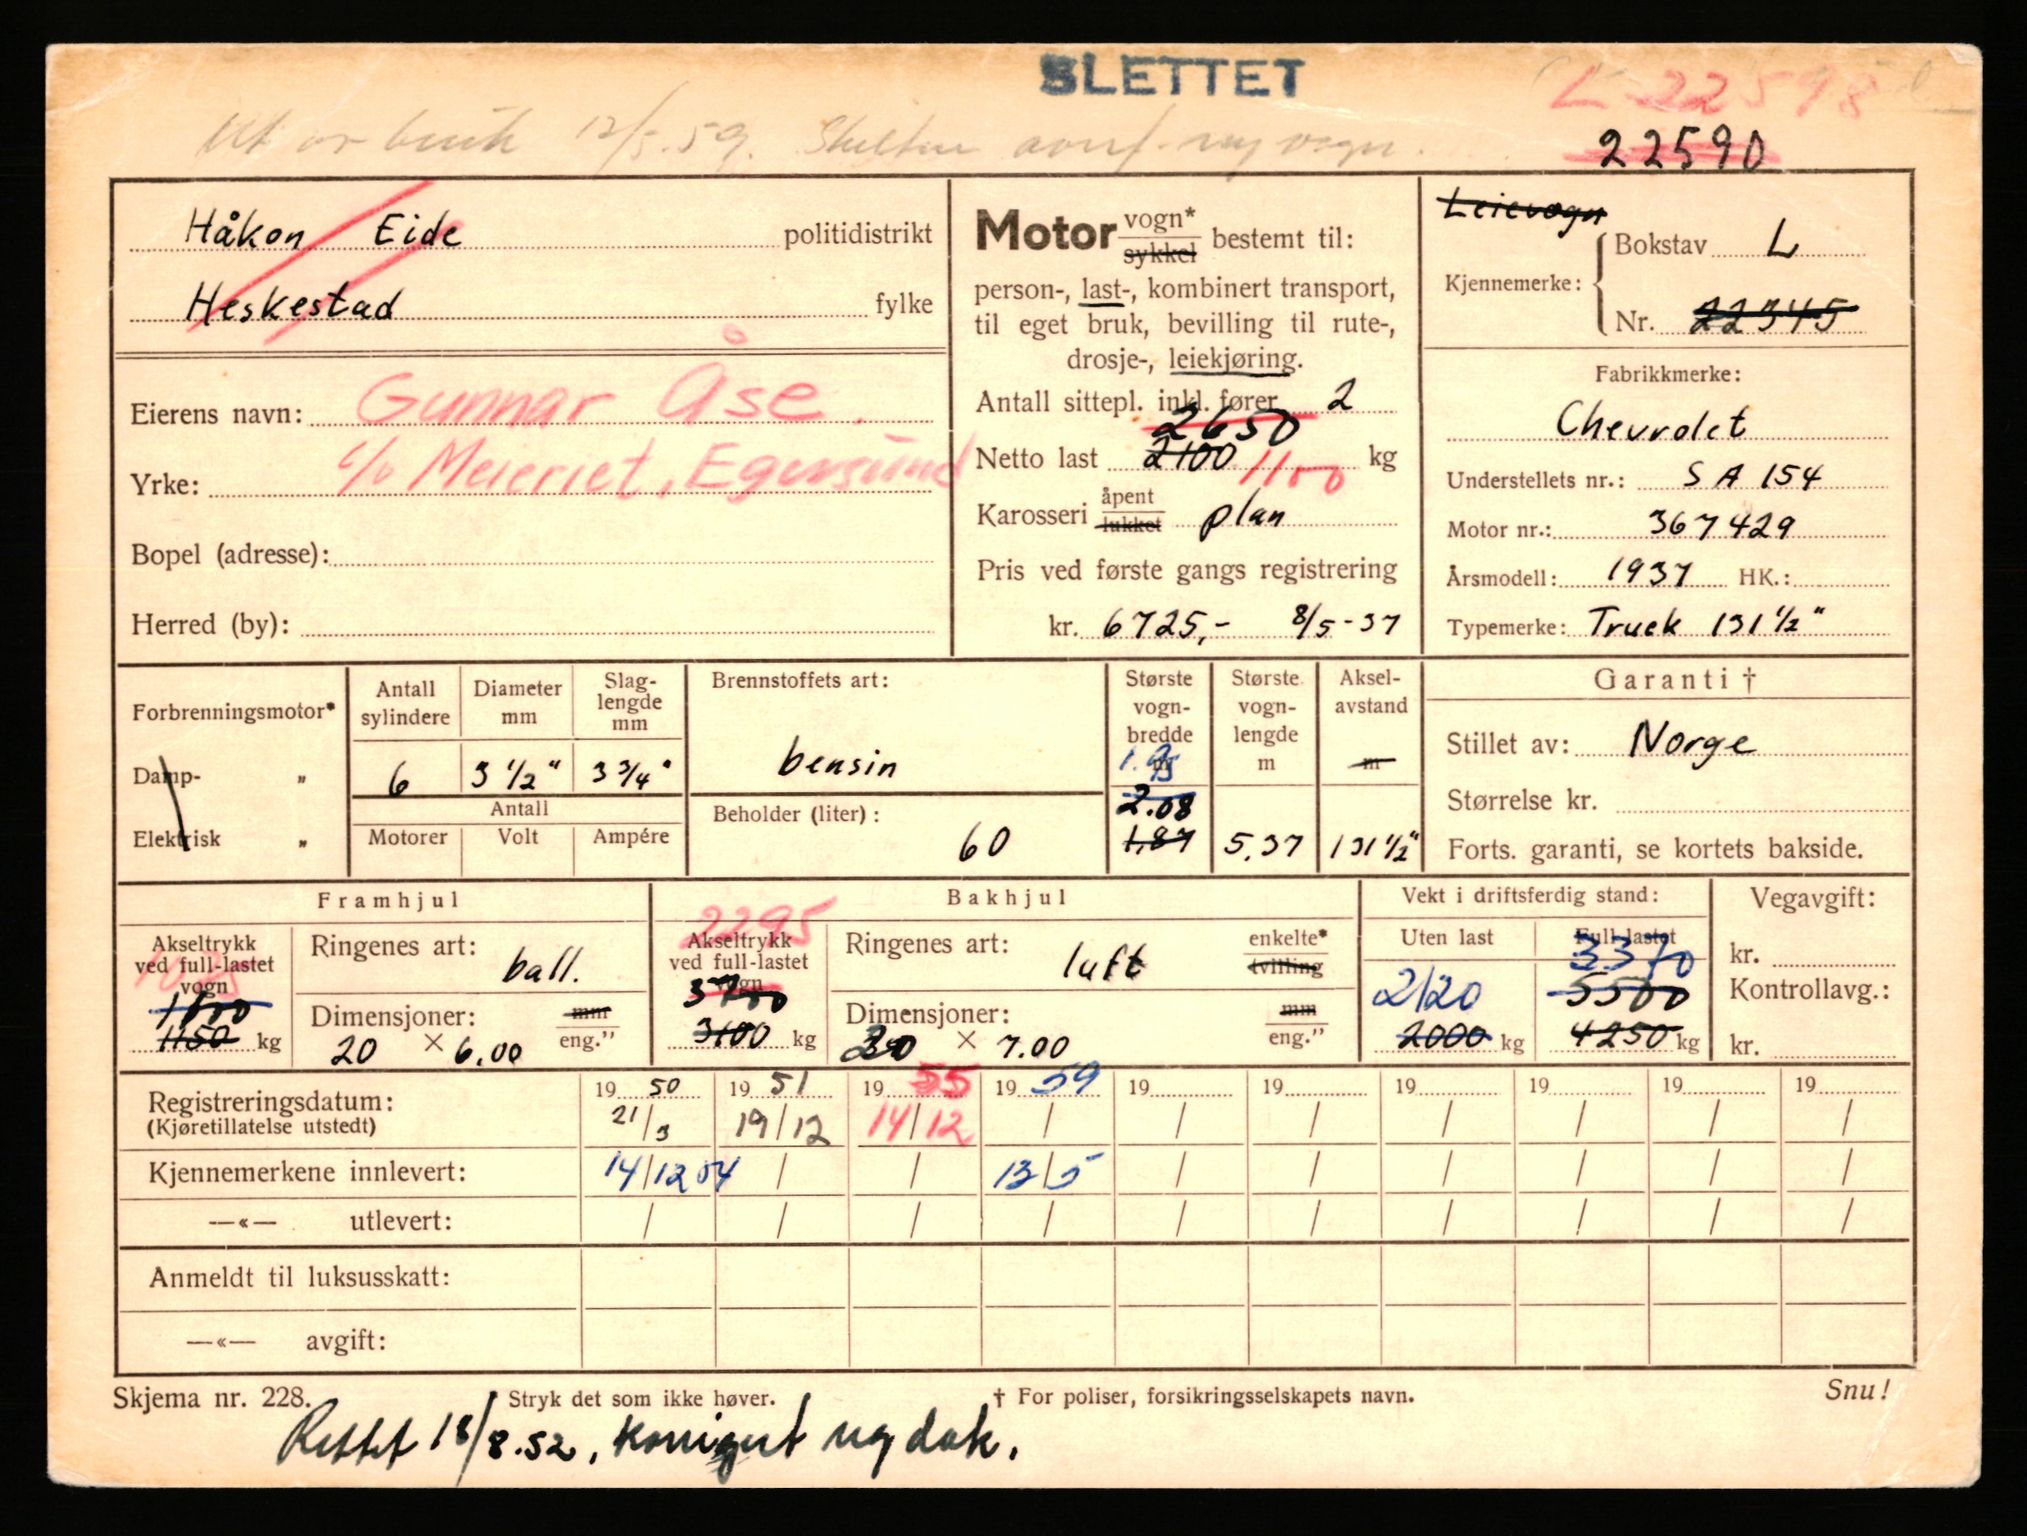 SLETTET
L-22598
Ut av bruk 12/5.59. Skiltene overf. ny vogn.
22590
Håkon Eide politidistrikt
Heskestad fylke
Eierens navn: Gunnar Åse.
Yrke: c/o Meieriet, Egersund
Bopel (adresse):
Herred (by):
Motor vogn* sykkel bestemt til:
person-, last-, kombinert transport,
til eget bruk, bevilling til rute-,
drosje-, leiekjøring.
Antall sittepl. inkl. fører 2
2650
Netto last 2100 1100 kg
Karosseri åpent lukket plan
Pris ved første gangs registrering
kr. 6725,- 8/5-37
Leievogn
Kjennemerke: Bokstav L
Nr. 22345
Fabrikkmerke:
Chevrolet
Understellets nr.: SA 154
Motor nr.: 367429
Årsmodell: 1937 HK.:
Typemerke: Truck 131 1/2"
Forbrenningsmotor*
Damp- „
Elektrisk „
Antall sylindere
Diameter mm
Slag-lengde mm
6 3 1/2" 3 3/4"
Antall
Motorer Volt Ampére
Brennstoffets art:
bensin
Beholder (liter):
60
Største vogn-bredde m
1.95
2.08
1,87
Største vogn-lengde m
5,37
Aksel-avstand m
131 1/2"
Garanti †
Stillet av: Norge
Størrelse kr.
Forts. garanti, se kortets bakside.
Framhjul
Akseltrykk ved full-lastet vogn
1600
1150 kg
Ringenes art: ball.
Dimensjoner: mm
20 × 6.00 eng."
Bakhjul
2295
Akseltrykk ved full-lastet vogn
3700
3100 kg
Ringenes art: luft enkelte* tvilling
Dimensjoner: mm
20 × 7.00 eng."
Vekt i driftsferdig stand:
Uten last Full-lastet
3370
2120 5500
2000 kg 4250 kg
Vegavgift:
kr.
Kontrollavg.:
kr.
Registreringsdatum: 19 50 19 51 19 55 19 59 19 19 19 19 19 19
(Kjøretillatelse utstedt) 21/3 19/12 14/12 / / / / / / /
Kjennemerkene innlevert: 14/12 54 / / 13/5 / / / / / /
—«— utlevert: / / / / / / / / / /
Anmeldt til luksusskatt:
—«— avgift:
Skjema nr. 228. Stryk det som ikke høver. † For poliser, forsikringsselskapets navn. Snu!
Rettet 18/8.52, korrigert vegdok.